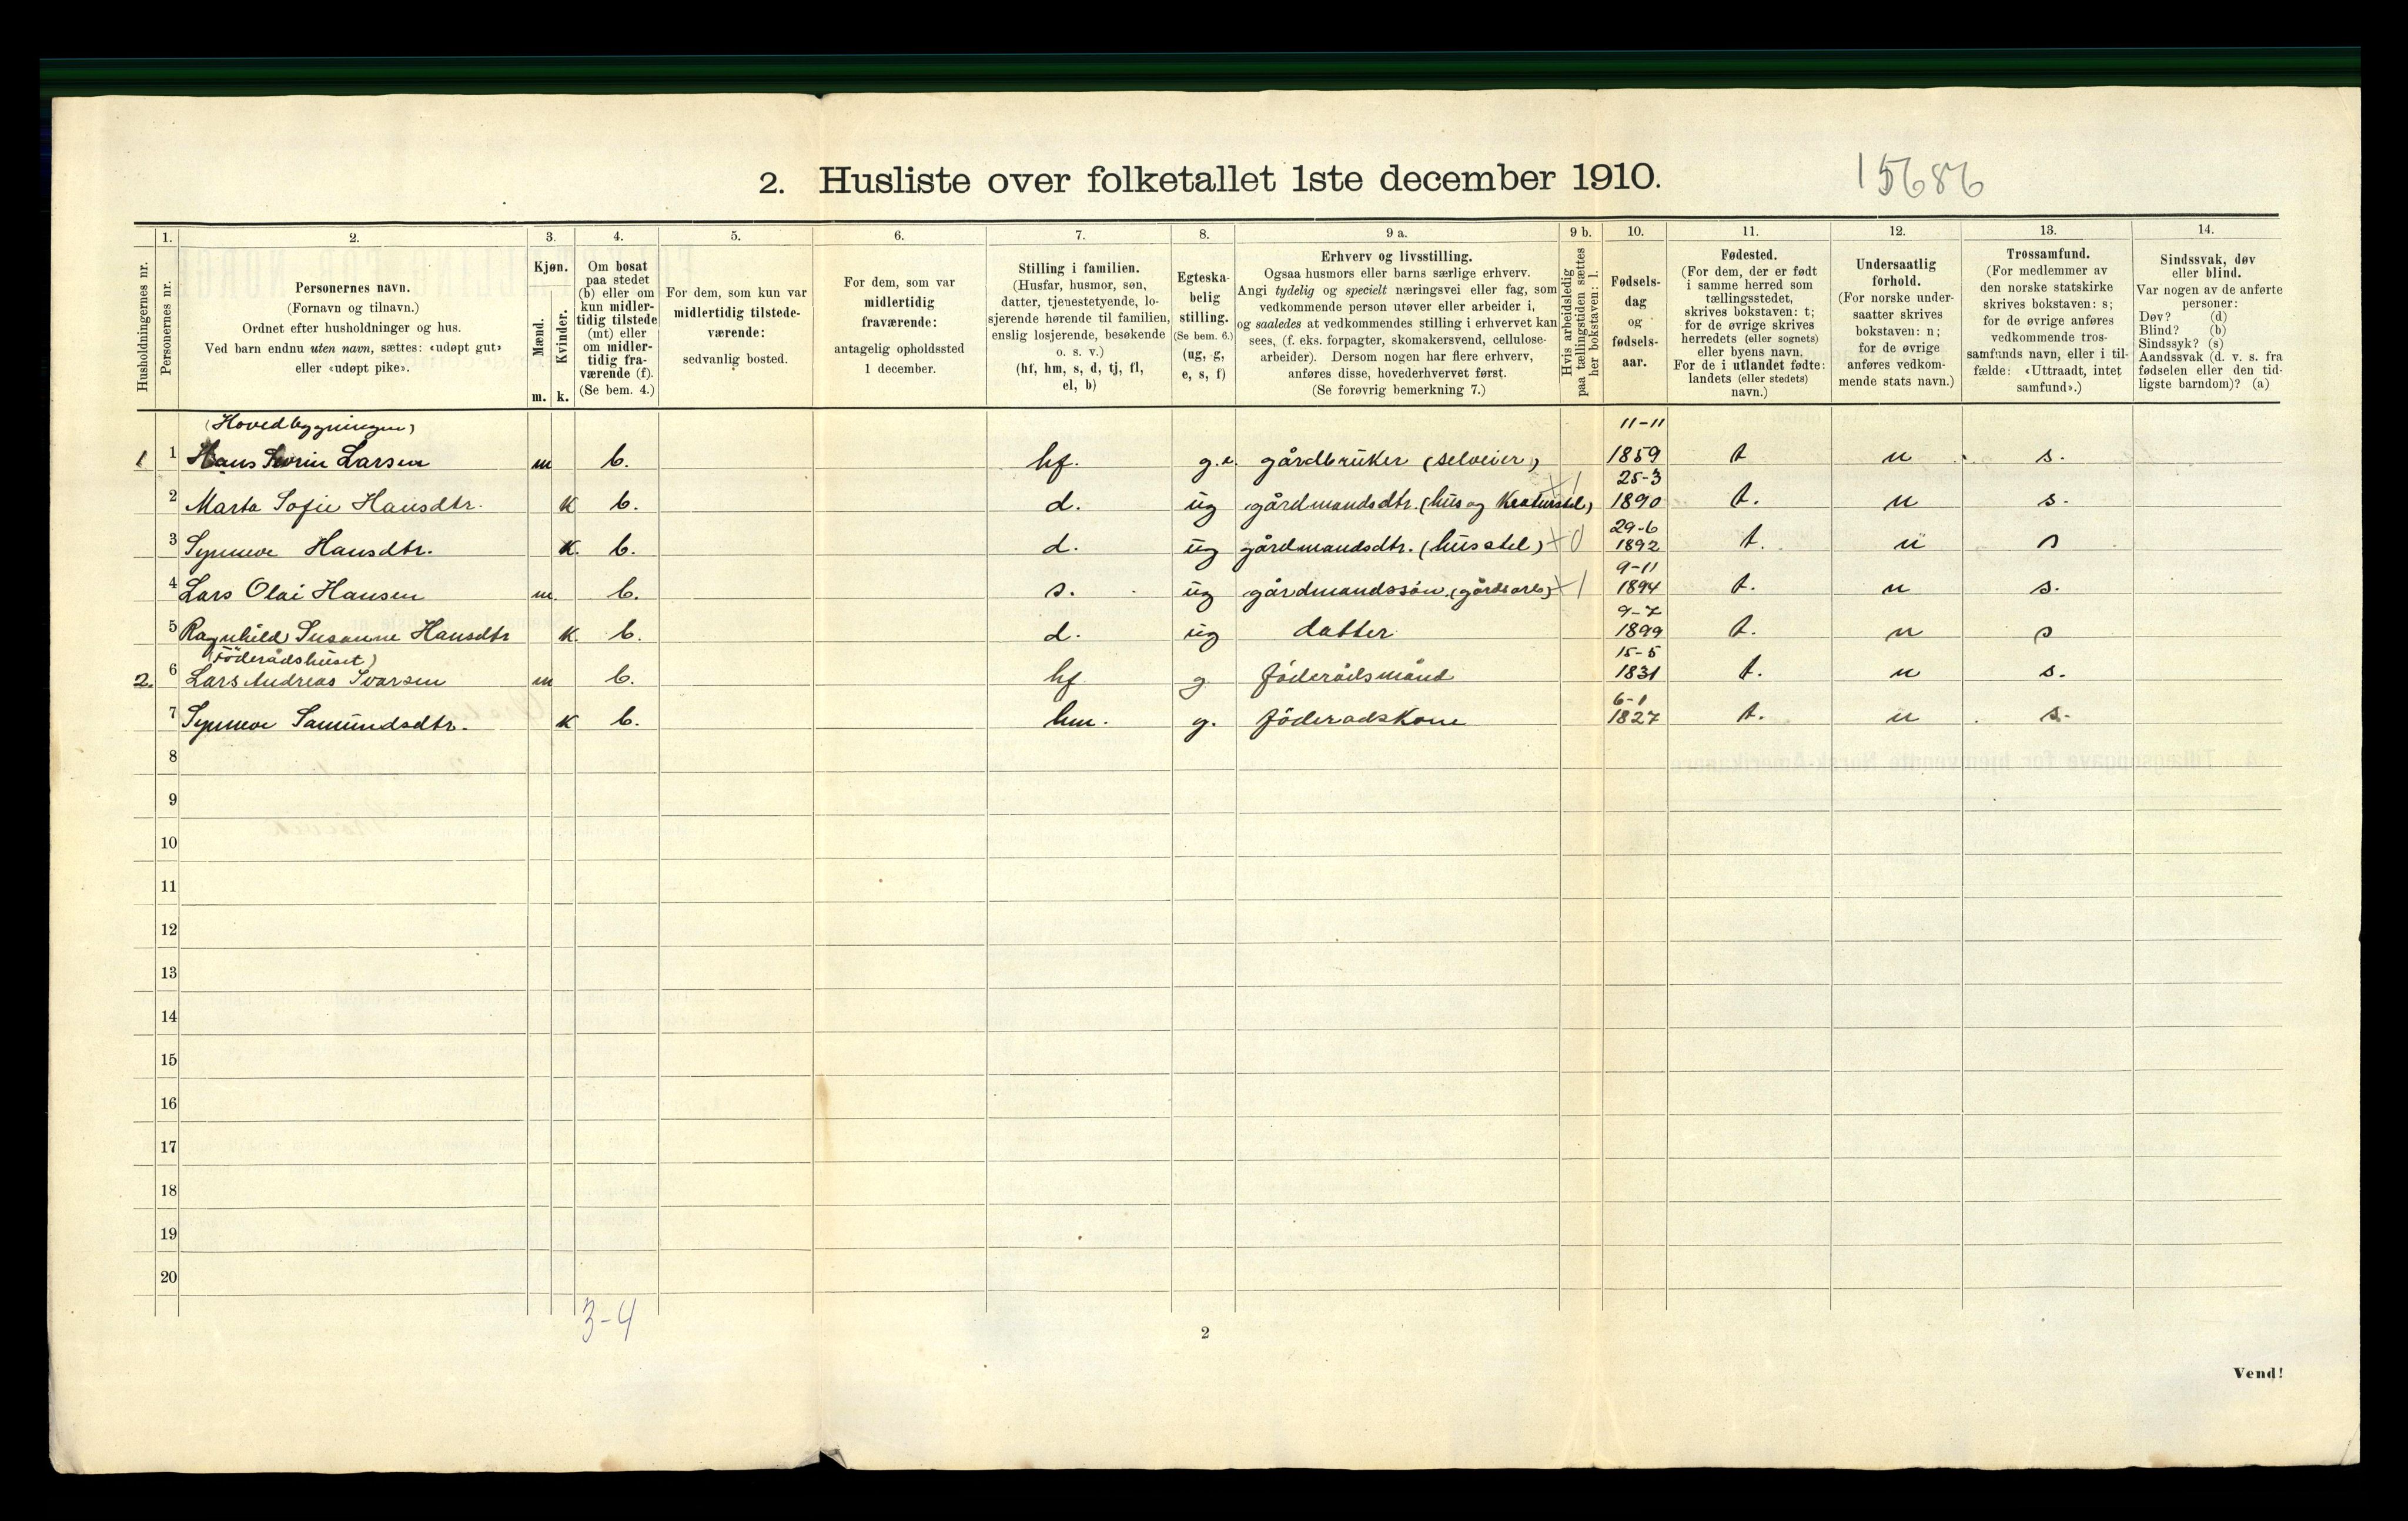 2. Husliste over folketallet 1ste december 1910.
15686
Husholdningernes nr.
1.
Personernes nr.
2.
Personernes navn.
(Fornavn og tilnavn.)
Ordnet efter husholdninger og hus.
Ved barn endnu uten navn, sættes: «udøpt gut»
eller «udøpt pike».
3.
Kjøn.
Mænd.
Kvinder.
m. k.
4.
Om bosat
paa stedet
(b) eller om
kun midler-
tidig tilstede
(mt) eller
om midler-
tidig fra-
værende (f).
(Se bem. 4.)
5.
For dem, som kun var
midlertidig tilstede-
værende:
sedvanlig bosted.
6.
For dem, som var
midlertidig
fraværende:
antagelig opholdssted
1 december.
7.
Stilling i familien.
(Husfar, husmor, søn,
datter, tjenestetyende, lo-
sjerende hørende til familien,
enslig losjerende, besøkende
o. s. v.)
(hf, hm, s, d, tj, fl,
el, b)
8.
Egteska-
belig
stilling.
(Se bem. 6.)
(ug, g,
e, s, f)
9 a.
Erhverv og livsstilling.
Ogsaa husmors eller barns særlige erhverv.
Angi tydelig og specielt næringsvei eller fag, som
vedkommende person utøver eller arbeider i,
og saaledes at vedkommendes stilling i erhvervet kan
sees, (f. eks. forpagter, skomakersvend, cellulose-
arbeider). Dersom nogen har flere erhverv,
anføres disse, hovederhvervet først.
(Se forøvrig bemerkning 7.)
9 b.
Hvis arbeidsledig
paa tællingstiden sættes
her bokstaven: l.
10.
Fødsels-
dag
og
fødsels-
aar.
11.
Fødested.
(For dem, der er født
i samme herred som
tællingsstedet,
skrives bokstaven: t;
for de øvrige skrives
herredets (eller sognets)
eller byens navn.
For de i utlandet fødte:
landets (eller stedets)
navn.)
12.
Undersaatlig
forhold.
(For norske under-
saatter skrives
bokstaven: n;
for de øvrige
anføres vedkom-
mende stats navn.)
13.
Trossamfund.
(For medlemmer av
den norske statskirke
skrives bokstaven: s;
for de øvrige anføres
vedkommende tros-
samfunds navn, eller i til-
fælde: «Uttraadt, intet
samfund».)
14.
Sindssvak, døv
eller blind.
Var nogen av de anførte
personer:
Døv? (d)
Blind? (b)
Sindssyk? (s)
Aandssvak (d. v. s. fra
fødselen eller den tid-
ligste barndom)? (a)
(Hovedbygningen) 11-11
1 1 Hans Larsen m b. hf. g.e. gårdbruker (selveier) 1859 t n s.
25-3
2 Marta Sofie Hansdtr. k b. d. ug gårdmandsdtr. (hus og kreaturstel) 1890 t. n s.
29-6
3 Synneve Hansdtr. k. b. d. ug gårdmandsdtr. (husstel) 1892 t. n s
9-11
4 Lars Olai Hansen m. b. s. ug gårdmandssøn (gårdsarb) 1894 t. n s.
9-7
5 Ragnhild Susanne Hansdtr k. b. d. ug datter 1899 t. n s
(Föderådshuset) 15-5
2. 6 Lars Andreas Ivarsen m b. hf g föderådsmand 1831 t. n s.
6-1
7 Synneve Samundsdtr. k b. hm. g. föderadskone 1827 t. n s.
8
9
10
11
12
13
14
15
16
17
18
19
20
3-4
2
Vend!